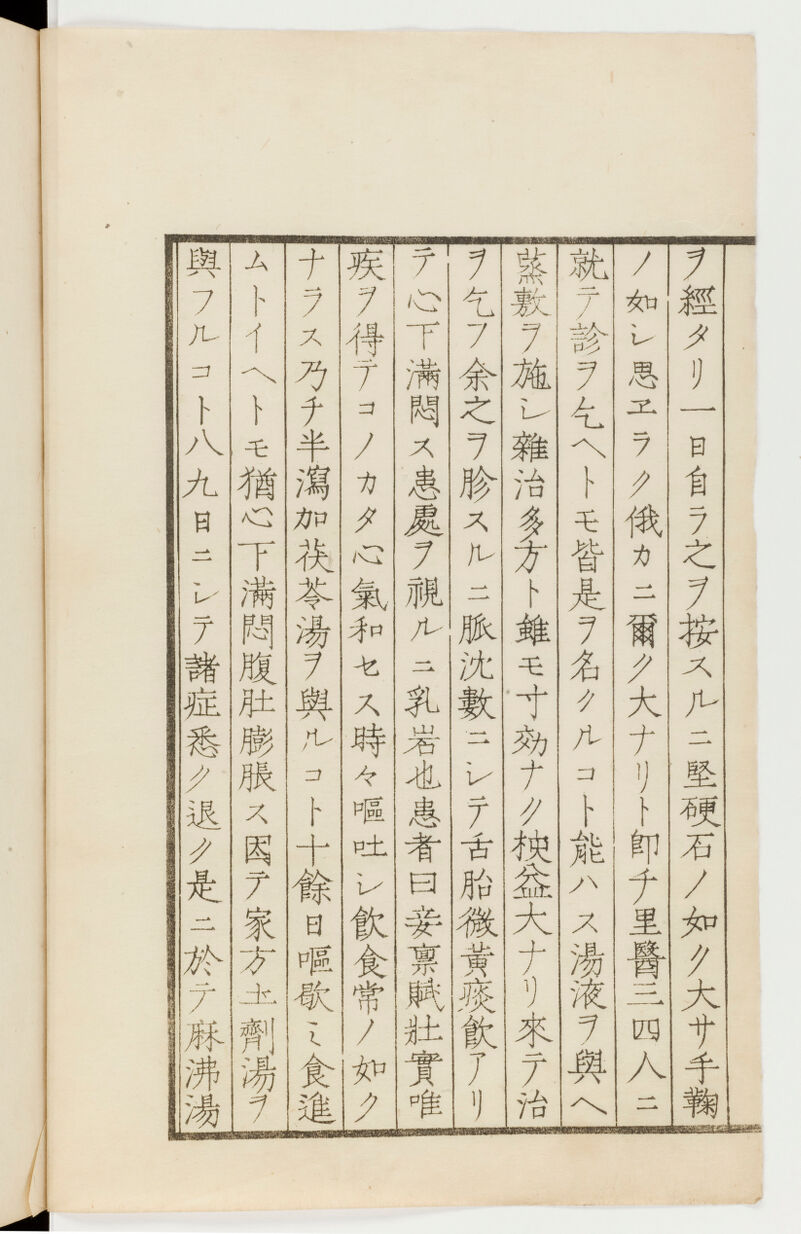 ヲ經タリ一日自ラ之ヲ按スルニ堅硬石ノ如ク大サ手鞠
ノ如シ思ヱラク俄カニ爾ク大ナリト卽チ里醫三四人ニ
就テ診ヲ乞ヘトモ皆是ヲ名クルコト能ハス湯液ヲ與ヘ
蒸敷ヲ施シ雜治多方ト雖モ寸効ナク柍益大ナリ來テ治
ヲ乞フ余之ヲ胗スルニ脈沈數ニシテ舌胎微黃痰飮アリ
テ心下滿悶ス患處ヲ視ルニ乳岩也患者曰妾禀賦壯實唯
疾ヲ得テコノカタ心氣和セス時々嘔吐シ飮食常ノ如ク
ナラス乃チ半瀉加茯苓湯ヲ與ルコト十餘日嘔歇ミ食進
ムトイヘトモ猶心下滿悶腹肚膨脹ス因テ家方圡劑湯ヲ
與フルコト八九日ニシテ諸症悉ク退ク是ニ於テ麻沸湯